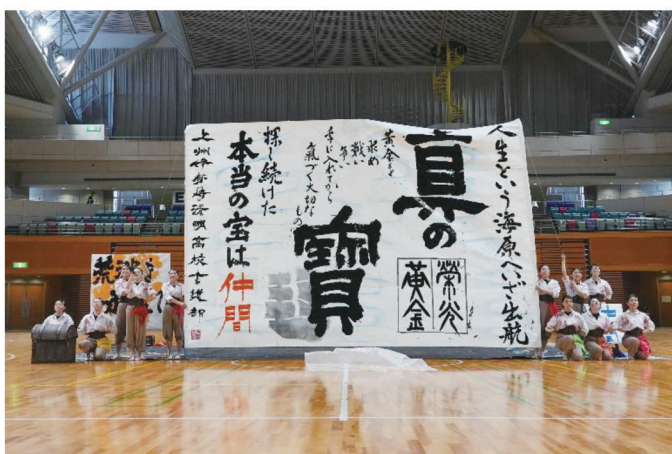 人生という海原へいざ出航
真の
寶
榮光
黄金
黄金を
求め
戦い
争い
手に入れてから
氣づく大切な
もの
探し続けた
本当の宝は仲間
上州伊勢崎清明高校書道部